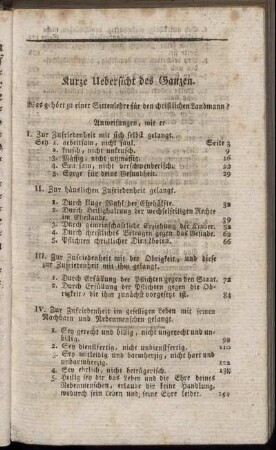 Kurze Uebersicht des Ganzen.
Was gehört zu einer Sittenlehre für den christlichen Landmann?
Anweisungen, wie er
I. Zur Zufriedenheit mit sich selbst gelangt.
Sey 1. arbeitsam, nicht faul. Seite 3
2. keusch, nicht unkeusch. 9
3. Mäßig, nicht unmäßig. 16
4. Sparsam, nicht verschwenderisch. 22
5. Sorge für deine Gesundheit. 29
II. Zur häuslichen Zufriedenheit gelangt.
1. Durch kluge Wahl der Ehehälfte.
2. Durch Heilighaltung der wechselseitigen Rechte
im Ehestande.
3. Durch gemeinschaftliche Erziehung der Kinder.
4. Durch christliches Betragen gegen das Gesinde. 62
5. Pflichten christlicher Dienstboten. 66
III. Zur Zufriedenheit mit der Obrigkeit, und diese
zur Zufriedenheit mit ihm gelangt.
1. Durch Erfüllung der Pflichten gegen den Staat. 72
2. Durch Erfüllung der Pflichten gegen die Obrig-
keit, die ihm zunächst vorgesetzt ist. 84
IV. Zur Zufriedenheit im geselligen Leben mit seinen
Nachbarn und Nebenmenschen gelangt.
1. Sey gerecht und billig, nicht ungerecht und un-
billig.
2. Sey dienstfertig, nicht undienstfertig.
3. Sey mitleidig und barmherzig, nicht hart und
unbarmherzig. 122
4. Sey ehrlich, nicht betrügerisch.
5. Heilig sey dir das Leben und die Ehre deines
Nebenmenschen, erlaube dir keine Handlung,
wodurch sein Leben und seine Ehre leidet.